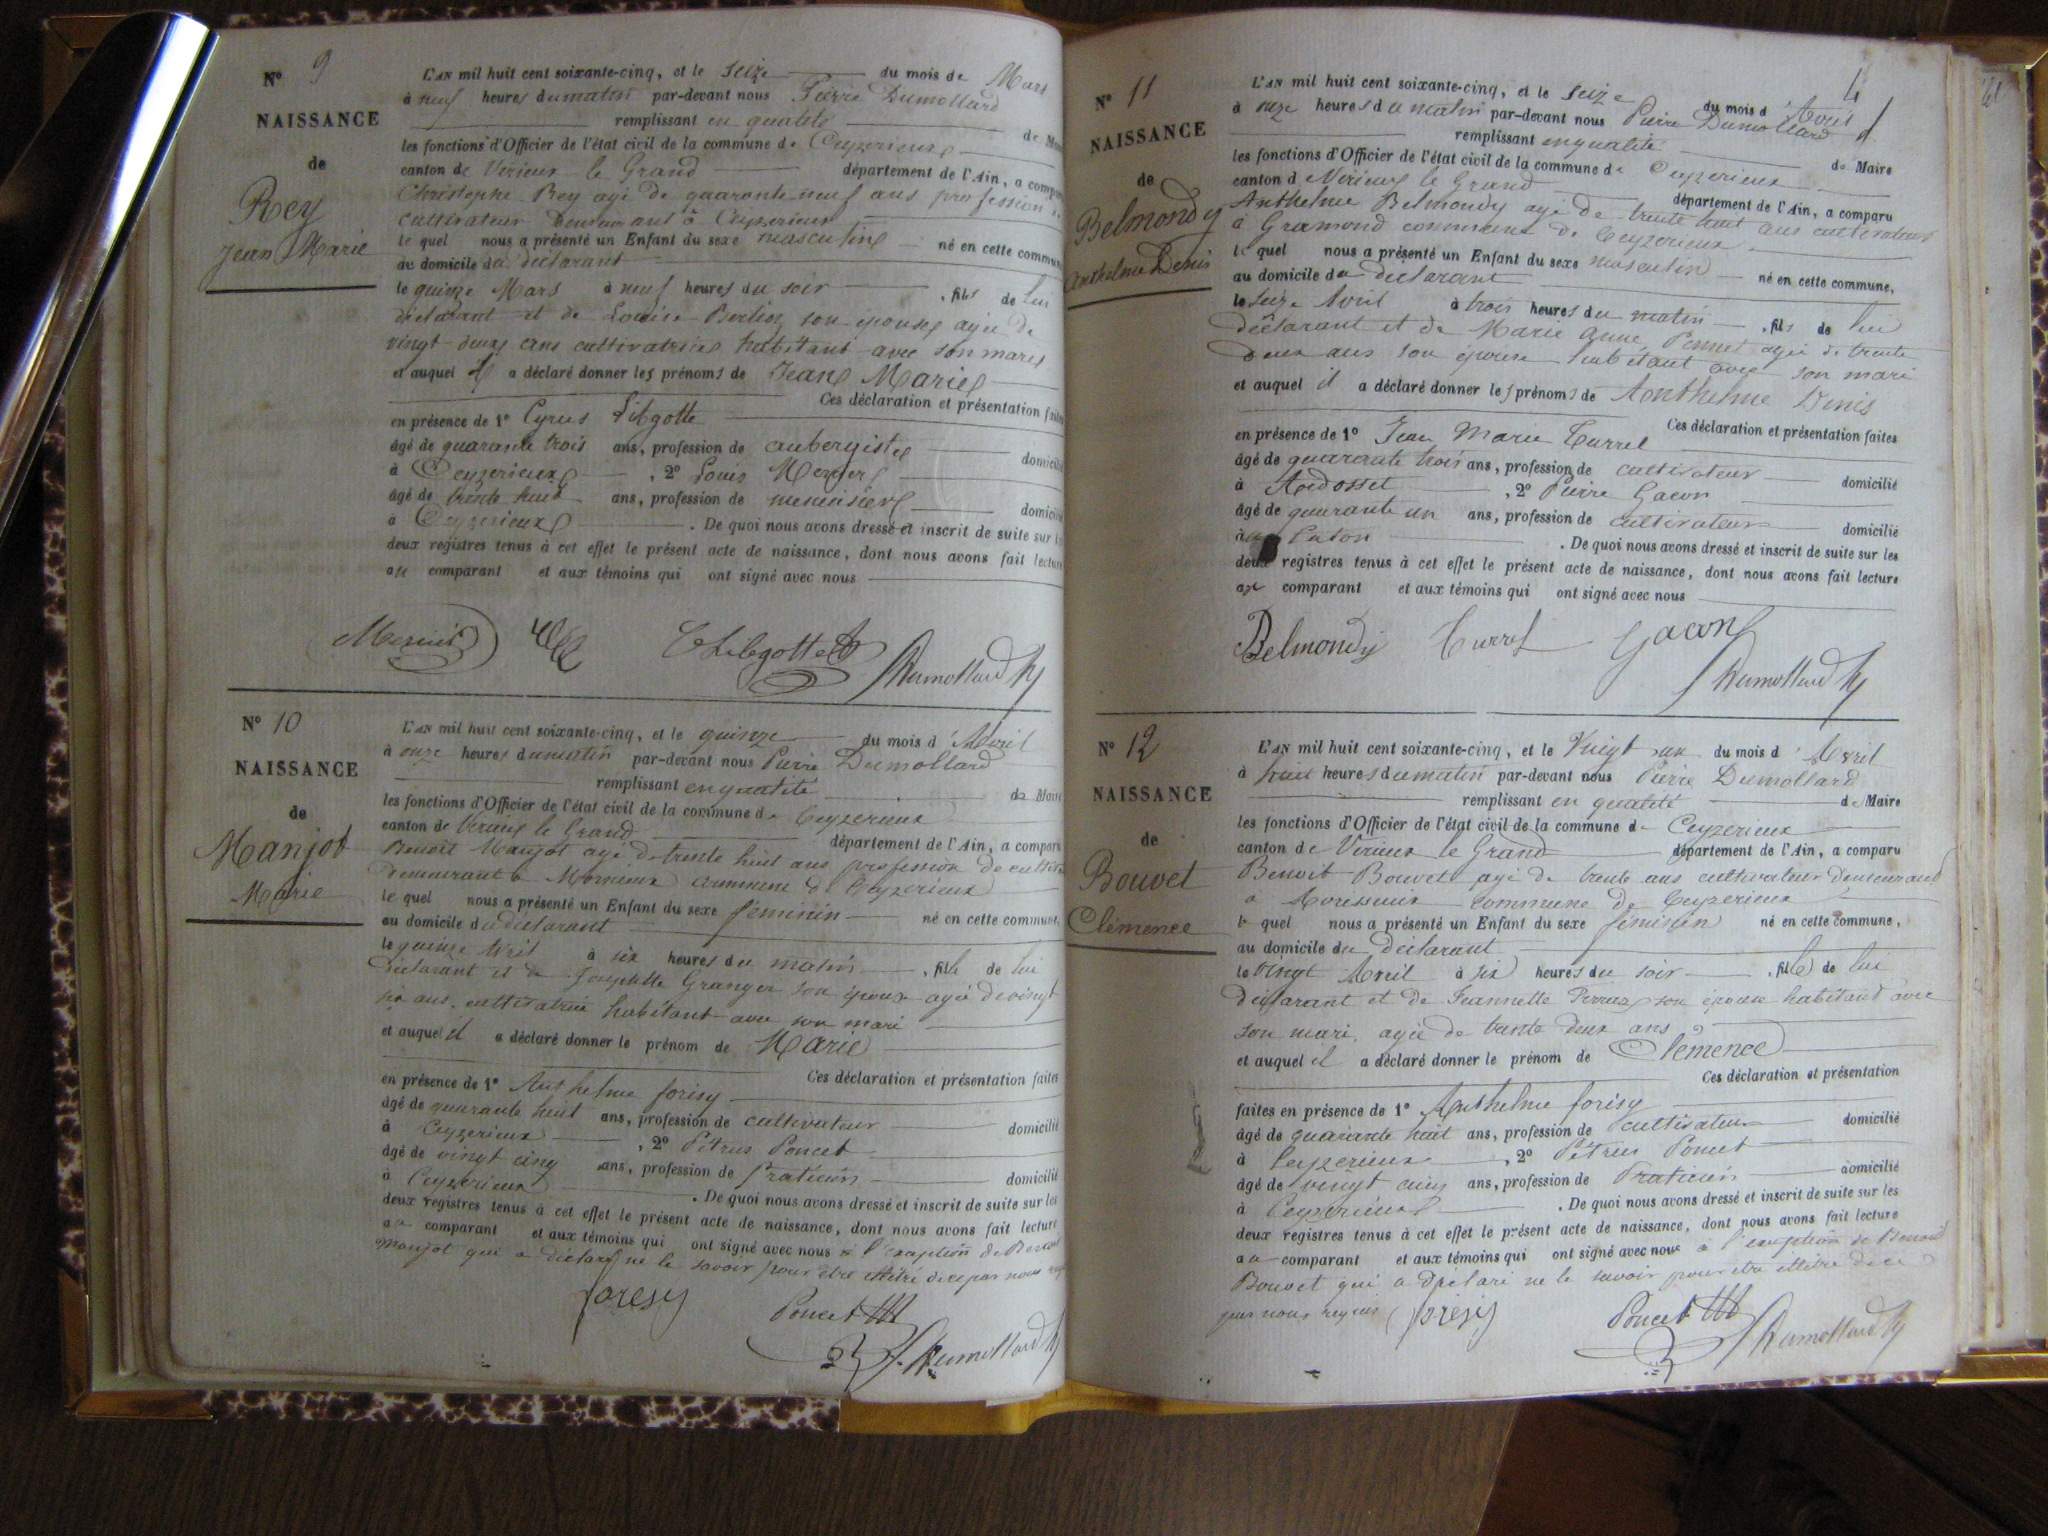 N° 9
NAISSANCE
de
Rey
Jean Marie
L'AN mil huit cent soixante-cinq, et le seize du mois de Mars
à neuf heures du matin par-devant nous Pierre Dumollard
remplissant en qualité de
les fonctions d'Officier de l'état civil de la commune de Ceyzerieux
canton de Virieux le Grand département de l'Ain, a comparu
Christophe Rey agé de quarante neuf ans profession de
cultivateur Demeurant à Ceyzerieux
le quel nous a présenté un Enfant du sexe masculin né en cette commune
au domicile du déclarant
le quinze Mars à neuf heures du soir , fils de lui
déclarant et de Louise Berlioz son épouse agée de
vingt deux ans cultivatrice habitant avec son mari
et auquel il a déclaré donner les prénoms de Jean Marie
Ces déclaration et présentation faites
en présence de 1° Cyrus Libgotte
âgé de quarante trois ans, profession de aubergiste domicilié
à Ceyzerieux , 2° Louis Mercier
âgé de trente huit ans, profession de menuisier domicilié
à Ceyzerieux . De quoi nous avons dressé et inscrit de suite sur les
deux registres tenus à cet effet le présent acte de naissance, dont nous avons fait lecture
au comparant et aux témoins qui ont signé avec nous
Libgotte Dumollard
N° 10
NAISSANCE
de
Manjot
Marie
L'AN mil huit cent soixante-cinq, et le quinze du mois d'Avril
à onze heures du matin par-devant nous Pierre Dumollard
remplissant en qualité de Maire
les fonctions d'Officier de l'état civil de la commune de Ceyzerieux
canton de Virieux le Grand département de l'Ain, a comparu
Benoit Manjot agé de trente huit ans profession de
Demeurant à commune de Ceyzerieux
le quel nous a présenté un Enfant du sexe féminin né en cette commune,
au domicile du déclarant
le quinze Avril à six heures du matin , fille de lui
déclarant et de Josephte Granger son épouse agée de vingt
six ans, cultivatrice habitant avec son mari
et auquel il a déclaré donner le prénom de Marie
Ces déclaration et présentation faites
en présence de 1° Anthelme forisy
âgé de quarante huit ans, profession de cultivateur domicilié
à Ceyzerieux , 2° Pétrus Poncet
âgé de vingt cinq ans, profession de Praticien domicilié
à Ceyzerieux . De quoi nous avons dressé et inscrit de suite sur les
deux registres tenus à cet effet le présent acte de naissance, dont nous avons fait lecture
au comparant et aux témoins qui ont signé avec nous à l'exception de Benoit
Manjot qui a déclaré ne le savoir pour être illétré de ce par nous
Poncet
Dumollard
4
N° 11
NAISSANCE
de
Belmondy
Anthelme Denis
L'AN mil huit cent soixante-cinq, et le seize du mois d'Avril
à onze heures du matin par-devant nous Pierre Dumollard
remplissant en qualité de Maire
les fonctions d'Officier de l'état civil de la commune de Ceyzerieux
canton de Virieux le Grand département de l'Ain, a comparu
Anthelme Belmondy agé de trente huit ans cultivateur
à Gramond commune de Ceyzerieux
le quel nous a présenté un Enfant du sexe masculin né en cette commune,
au domicile du déclarant
le seize Avril à trois heures du matin , fils de lui
déclarant et de Marie Anne agée de trente
deux ans son épouse habitant avec son mari
et auquel il a déclaré donner les prénoms de Anthelme Denis
Ces déclaration et présentation faites
en présence de 1° Jean Marie Turrel
âgé de quarante trois ans, profession de cultivateur domicilié
à Ardosset , 2° Pierre Gacon
âgé de quarante un ans, profession de cultivateur domicilié
. De quoi nous avons dressé et inscrit de suite sur les
deux registres tenus à cet effet le présent acte de naissance, dont nous avons fait lecture
au comparant et aux témoins qui ont signé avec nous
Belmondy Turrel Gacon
Dumollard
N° 12
NAISSANCE
de
Bouvet
Clémence
L'AN mil huit cent soixante-cinq, et le Vingt un du mois d'Avril
à huit heures du matin par-devant nous Pierre Dumollard
remplissant en qualité de Maire
les fonctions d'Officier de l'état civil de la commune de Ceyzerieux
canton de Virieux le Grand département de l'Ain, a comparu
Benoit Bouvet agé de trente ans cultivateur demeurant
à commune de Ceyzerieux
le quel nous a présenté un Enfant du sexe féminin né en cette commune,
au domicile du déclarant
le vingt Avril à six heures du soir , fille de lui
déclarant et de Jeannette son épouse habitant avec
son mari, agée de trente deux ans
et auquel il a déclaré donner le prénom de Clémence
Ces déclaration et présentation
faites en présence de 1° Anthelme forisy
âgé de quarante huit ans, profession de cultivateur domicilié
à Ceyzerieux , 2° Pétrus Poncet
âgé de vingt cinq ans, profession de Praticien domicilié
à Ceyzerieux . De quoi nous avons dressé et inscrit de suite sur les
deux registres tenus à cet effet le présent acte de naissance, dont nous avons fait lecture
au comparant et aux témoins qui ont signé avec nous à l'exception de Benoit
Bouvet qui a déclaré ne le savoir pour être illétré de ce
par nous requis Poncet
Dumollard